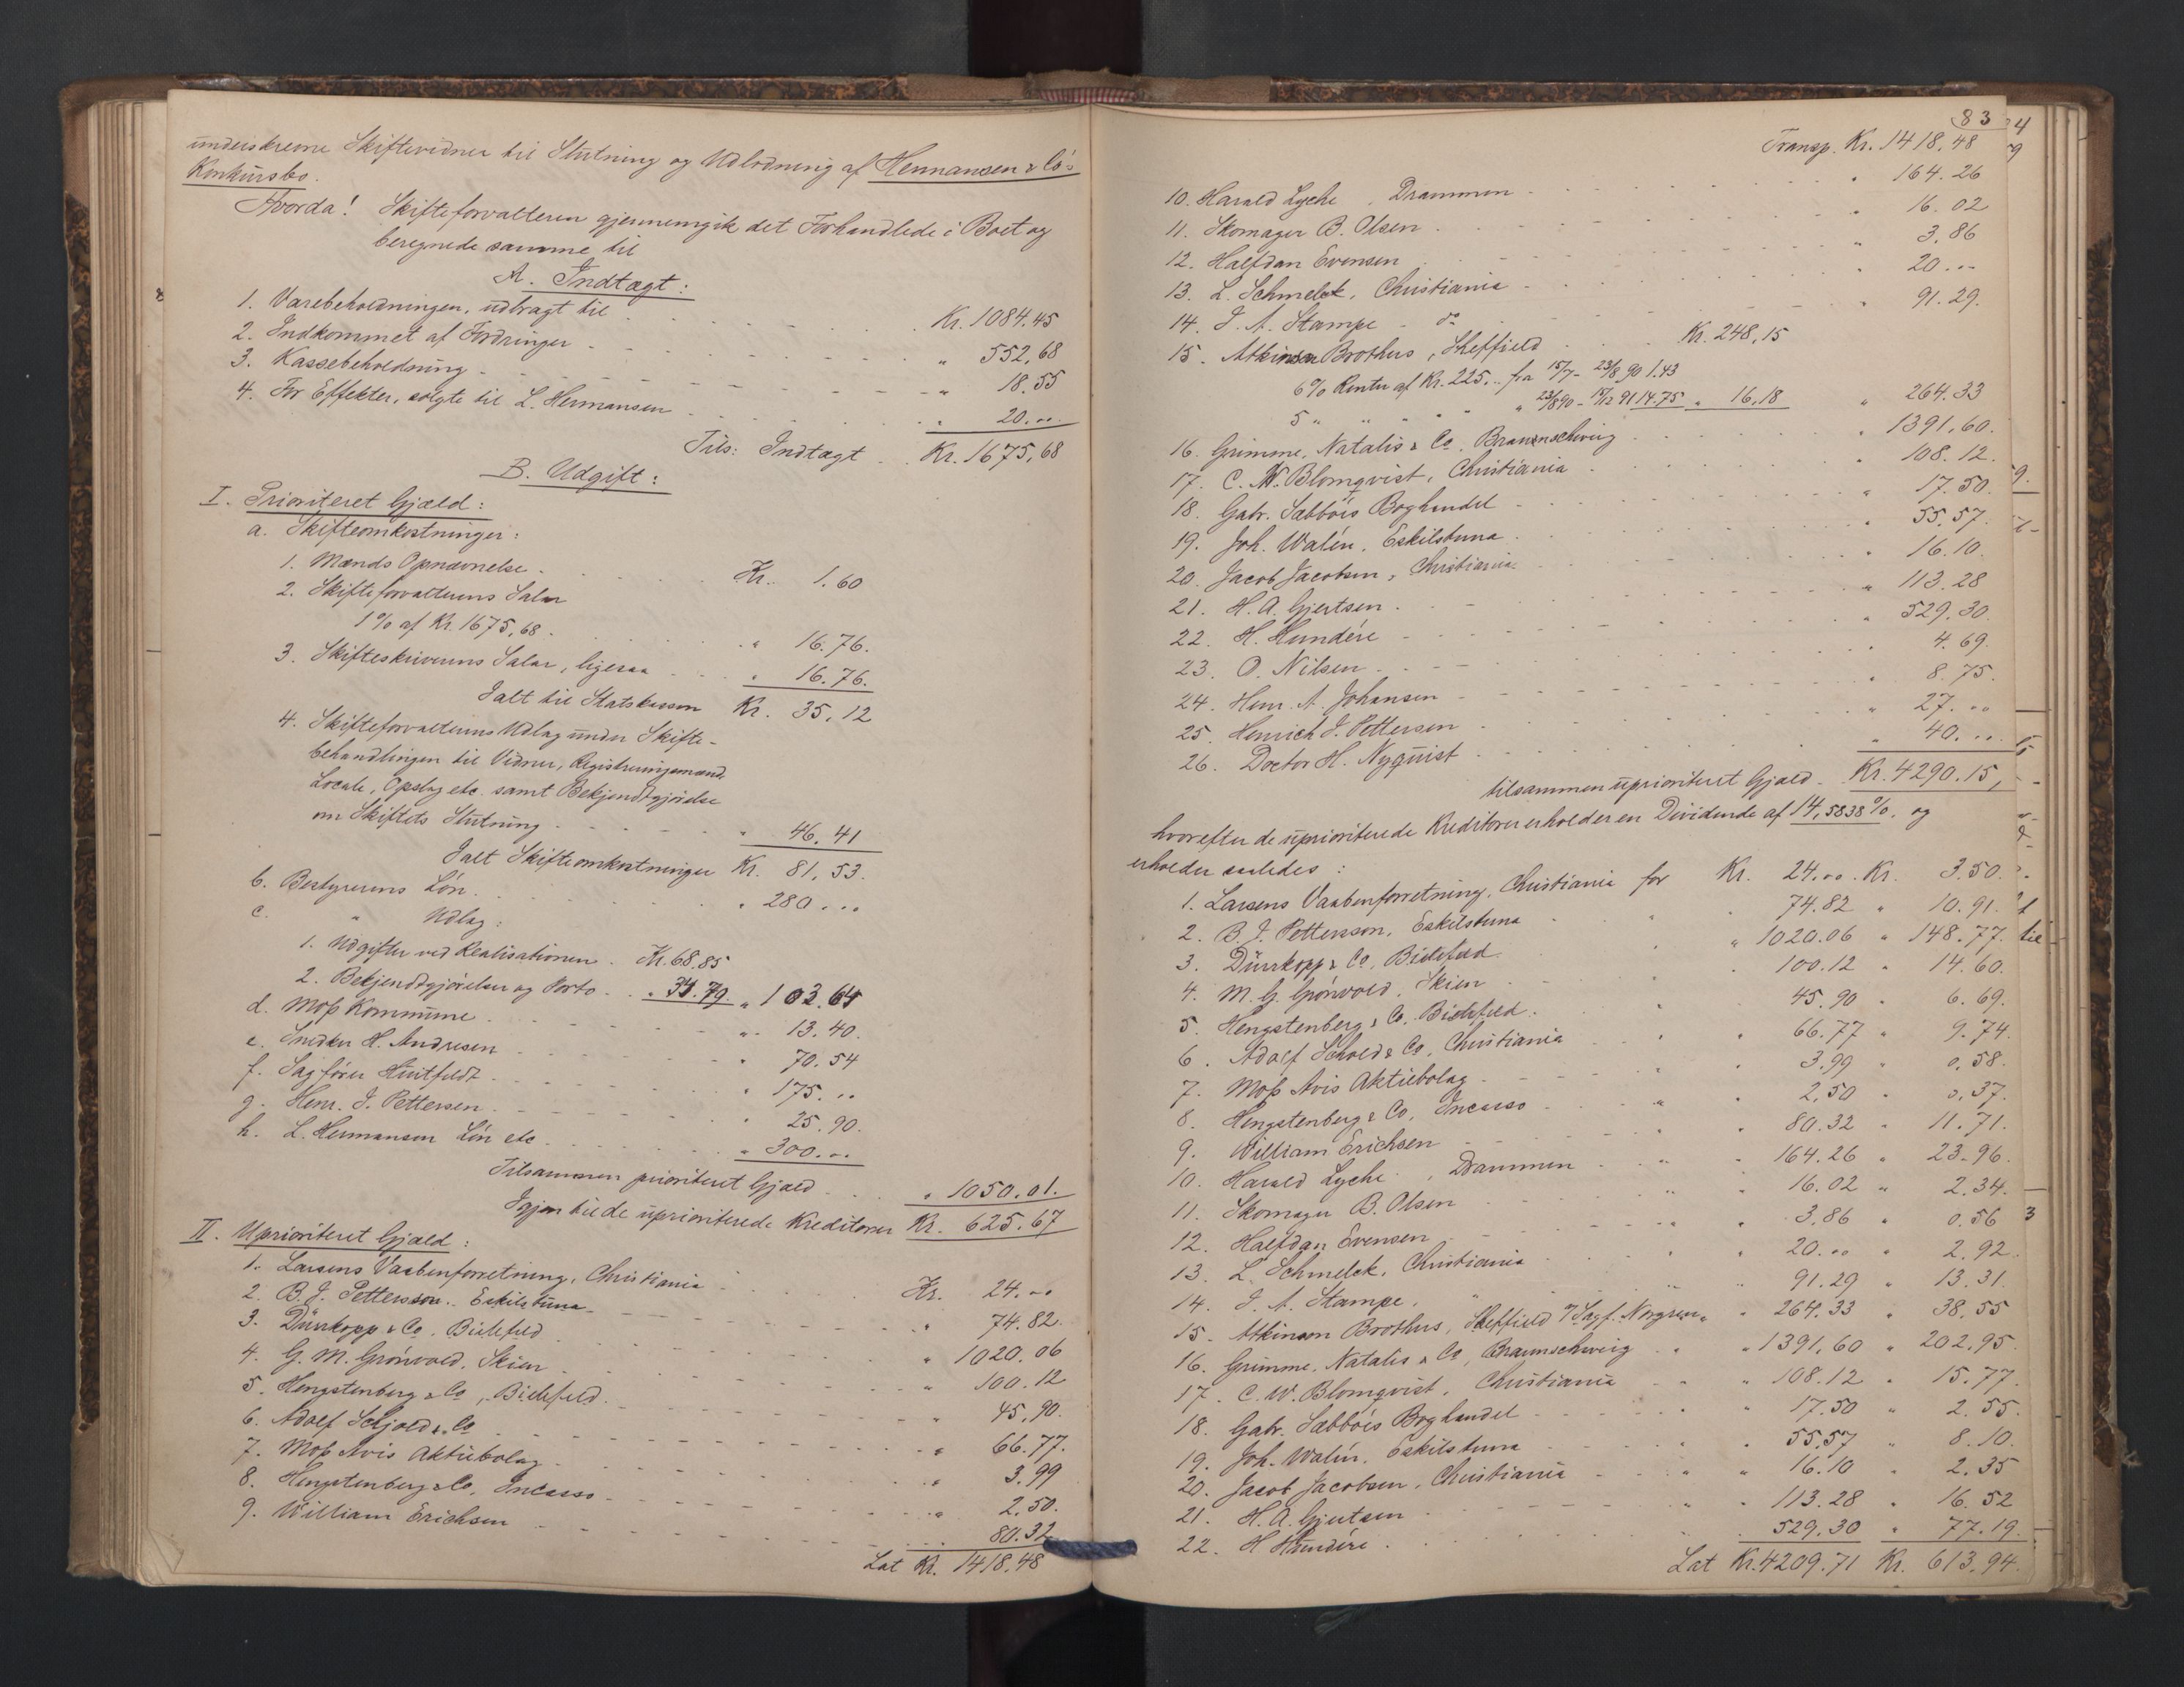 underskrevne Skiftevidner til Slutning og Udlodning af Hermansen & Co's
Konkursbo.
Hvorda! Skifteforvalteren gjennemgik det Forhandlede i Boet og
beregnede samme til
A. Indtægt:
1. Varebeholdningen, udbragt til Kr. 1084.45
2. Indkommet af Fordringer " 552,68
3. Kassebeholdning " 18.55
4. For Effekter, solgte til L. Hermansen " 20...
Tils: Indtægt Kr. 1675,68
B. Udgift:
I. Prioriteret Gjæld:
a. Skifteomkostninger:
1. Mænds Opnævnelse Kr. 1.60
2. Skifteforvalterens Salær
1% af Kr. 1675,68 " 16.76.
3. Skifteskriverens Salær, ligesaa " 16.76.
Ialt til Statskassen Kr. 35,12
4. Skifteforvalterens Udlæg under Skifte-
behandlingen til Vidner, Registreringsmænd,
Locale, Opslag etc. samt Bekjendtgjørelse
om Skiftets Slutning " 46,41
Ialt Skifteomkostninger Kr. 81,53.
b. Bestyrerens Løn " 280...
c. " Udlæg:
1. Udgifter ved Realisationen Kr. 68,85
2. Bekjendtgjørelser og Porto " 34.79. " 103.64
d. Moss Kommune " 13.40.
e. Snedker H. Andresen " 70.54
f. Sagfører Huitfeldt " 175...
g. Henr. J. Pettersen " 25.90.
h. L. Hermansen Løn etc " 300...
Tilsammen prioriteret Gjæld " 1050.01.
Igjen til de uprioriterede Kreditorer Kr. 625.67
II. Uprioriteret Gjæld:
1. Larsens Vaabenforretning, Christiania Kr. 24...
2. B. J. Pettersson, Eskilstuna " 74.82.
3. Dürrkopp & Co. Bielefeld " 1020.06
4. G. M. Grönvold, Skien " 100.12
5. Hengstenberg & Co, Bielefeld " 45.90.
6. Adolf Schjold & Co " 66.77.
7. Moss Avis Aktiebolag " 3.99
8. Hengstenberg & Co, Incasso " 2.50.
9. William Erichsen 80.32
Lat Kr. 1418.48
83
Transp. Kr. 1418,48
10. Harald Lyche, Drammen " 164.26
11. Skomager B. Olsen " 16.02
12. Halfdan Evensen " 3.86
13. L. Schmelck, Christiania " 20...
14. J. A. Stampe - do " 91.29.
15. Atkinson Brothers, Sheffield Kr. 248,15
6% Renter af Kr. 225,.. fra 15/7 - 23/8 90 1.43
5 " " " " 23/8 90 - 17/12 91 14.75 " 16,18 " 264.33
16. Grimme, Natalis & Co, Braunschweig " 1391,60.
17. C. W. Blomqvist, Christiania " 108.12.
18. Gabr. Sæbbøs Boghandel " 17.50.
19. Joh. Walén, Eskilstuna " 55,57.
20. Jacob Jacobsen, Christiania " 16.10.
21. H. A. Gjertsen " 113.28
22. H. Hundére " 529,30.
23. O. Nilsen " 4.69.
24. Henr. A. Johansen " 8.75.
25. Henrich J. Pettersen " 27...
26. Doctor H. Nyquist " 40...
tilsammen uprioriteret Gjæld Kr. 4290.15,
hvorefter de uprioriterede Kreditorer erholder en Dividende af 14,5838%, og
erholder saaledes:
1. Larsens Vaabenforretning, Christiania for Kr. 24... Kr. 3.50.
2. B. J. Pettersson, Eskilstuna " " 74.82 " 10.91.
3. Dürrkopp & Co, Bielefeld " " 1020.06 " 148.77.
4. M. G. Grönvold, Skien 100.12 " 14.60.
5. Hengstenberg & Co, Bielefeld 45.90 " 6.69.
6. Adolf Schold & Co, Christiania " " 66.77 " 9.74.
7. Moss Avis Aktiebolag " " 3.99 " 0.58.
8. Hengstenberg & Co, Incasso " " 2,50 " 0,37.
9. William Erichsen " " 80.32 " 11.71.
10. Harald Lyche, Drammen " " 164.26 " 23.96.
11. Skomager B. Olsen " " 16.02 " 2.34.
12. Halfdan Evensen " " 3,86 " 0.56
13. L. Schmelck, Christiania " " 20... " 2.92.
14. J. A. Stampe, " " " 91.29 " 13.31.
15. Atkinson Brothers, Sheffield v/ Sagf. Norgren " 264.33 " 38,55
16. Grimme, Natalis & Co, Braunschweig " " 1391,60 " 202.95.
17. C. W. Blomqvist, Christiania " " 108.12 " 15.77.
18. Gabr. Sæbbøs Boghandel " " 17.50 " 2.55.
19. Joh. Walén, Eskilstuna " " 55,57 " 8.10.
20. Jacob Jacobsen, Christiania " " 16.10 " 2.35
21. H. A. Gjertsen " " 113.28 " 16.52
22. H Hundére " " 529,30 " 77.19.
Lat Kr. 4209.71 Kr. 613.94.